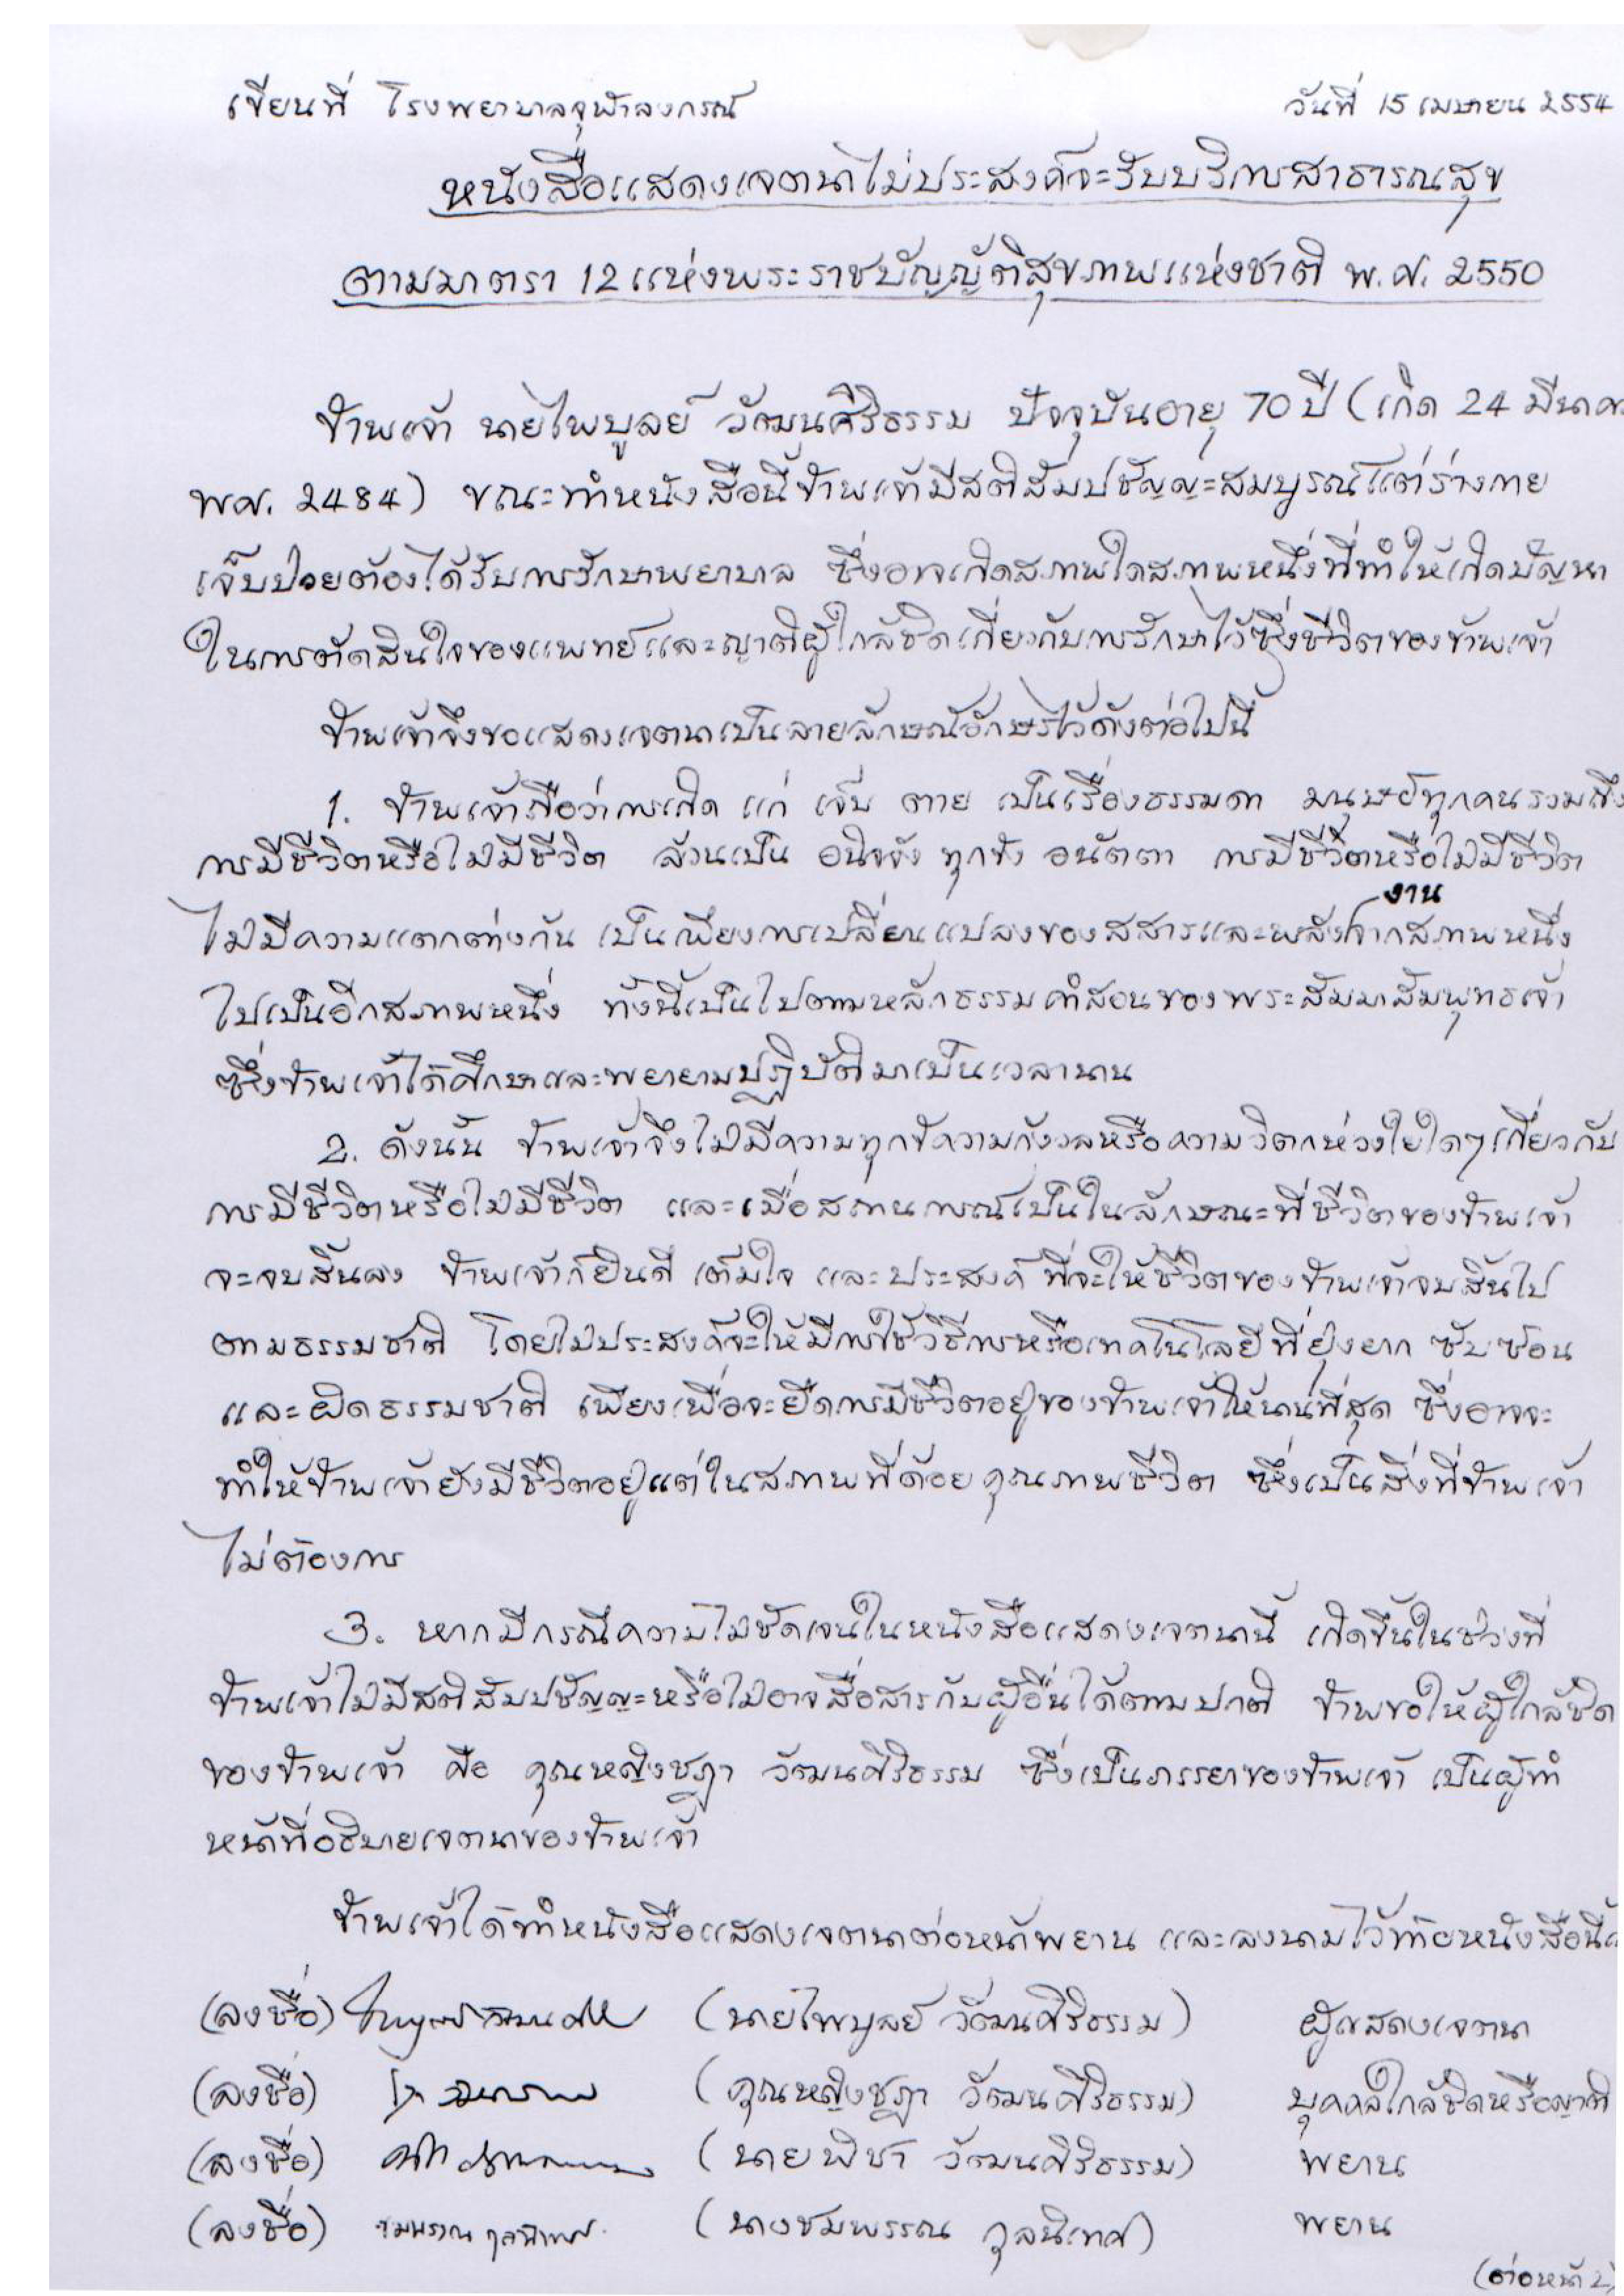 เขียนที่ โรงพยาบาลจุฬาลงกรณ์ วันที่ 15 เมษายน 2554
หนังสือแสดงเจตนาไม่ประสงค์จะรับบริการสาธารณสุข
ตามมาตรา 12 แห่งพระราชบัญญัติสุขภาพแห่งชาติ พ.ศ. 2550
ข้าพเจ้า นายไพบูลย์ วัฒนศิริธรรม ปัจจุบันอายุ 70 ปี (เกิด 24 มีนาค
พ.ศ. 2484) ขณะทำหนังสือนี้ข้าพเจ้ามีสติสัมปชัญญะสมบูรณ์แต่ร่างกาย
เจ็บป่วยต้องได้รับการรักษาพยาบาล ซึ่งอาจเกิดสภาพใดสภาพหนึ่งที่ทำให้เกิดปัญหา
ในการตัดสินใจของแพทย์และญาติผู้ใกล้ชิดเกี่ยวกับการรักษาไว้ซึ่งชีวิตของข้าพเจ้า
ข้าพเจ้าจึงขอแสดงเจตนาเป็นลายลักษณ์อักษรไว้ดังต่อไปนี้
1. ข้าพเจ้าถือว่าการเกิด แก่ เจ็บ ตาย เป็นเรื่องธรรมดา มนุษย์ทุกคนรวมถึง
การมีชีวิตหรือไม่มีชีวิต ล้วนเป็น อนิจจัง ทุกขัง อนัตตา การมีชีวิตหรือไม่มีชีวิต
ไม่มีความแตกต่างกัน เป็นเพียงการเปลี่ยนแปลงของสสารและพลังงานจากสภาพหนึ่ง
ไปเป็นอีกสภาพหนึ่ง ทั้งนี้เป็นไปตามหลักธรรมคำสอนของพระสัมมาสัมพุทธเจ้า
ซึ่งข้าพเจ้าได้ศึกษาและพยายามปฏิบัติมาเป็นเวลานาน
2. ดังนั้น ข้าพเจ้าจึงไม่มีความทุกข์ความกังวลหรือความวิตกห่วงใยใดๆเกี่ยวกับ
การมีชีวิตหรือไม่มีชีวิต และเมื่อสถานการณ์เป็นในลักษณะที่ชีวิตของข้าพเจ้า
จะจบสิ้นลง ข้าพเจ้าก็ยินดี เต็มใจ และประสงค์ ที่จะให้ชีวิตของข้าพเจ้าจบสิ้นไป
ตามธรรมชาติ โดยไม่ประสงค์จะให้มีการใช้วิธีการหรือเทคโนโลยีที่ยุ่งยาก ซับซ้อน
และผิดธรรมชาติ เพียงเพื่อจะยืดการมีชีวิตอยู่ของข้าพเจ้าให้นานที่สุด ซึ่งอาจจะ
ทำให้ข้าพเจ้ายังมีชีวิตอยู่แต่ในสภาพที่ด้อยคุณภาพชีวิต ซึ่งเป็นสิ่งที่ข้าพเจ้า
ไม่ต้องการ
3. หากมีกรณีความไม่ชัดเจนในหนังสือแสดงเจตนานี้ เกิดขึ้นในช่วงที่
ข้าพเจ้าไม่มีสติสัมปชัญญะหรือไม่อาจสื่อสารกับผู้อื่นได้ตามปกติ ข้าพขอให้ผู้ใกล้ชิด
ของข้าพเจ้า คือ คุณหญิงชฎา วัฒนศิริธรรม ซึ่งเป็นภรรยาของข้าพเจ้า เป็นผู้ทำ
หน้าที่อธิบายเจตนาของข้าพเจ้า
ข้าพเจ้าได้ทำหนังสือแสดงเจตนาต่อหน้าพยาน และลงนามไว้ท้ายหนังสือนี้
(ลงชื่อ) (นายไพบูลย์ วัฒนศิริธรรม) ผู้แสดงเจตนา
(ลงชื่อ) (คุณหญิงชฎา วัฒนศิริธรรม) บุคคลใกล้ชิดหรือญาติ
(ลงชื่อ) (นายพิชา วัฒนศิริธรรม) พยาน
(ลงชื่อ) ชมพรรณ กุลนิเทศ (นางชมพรรณ กุลนิเทศ) พยาน
(ต่อหน้า 2)